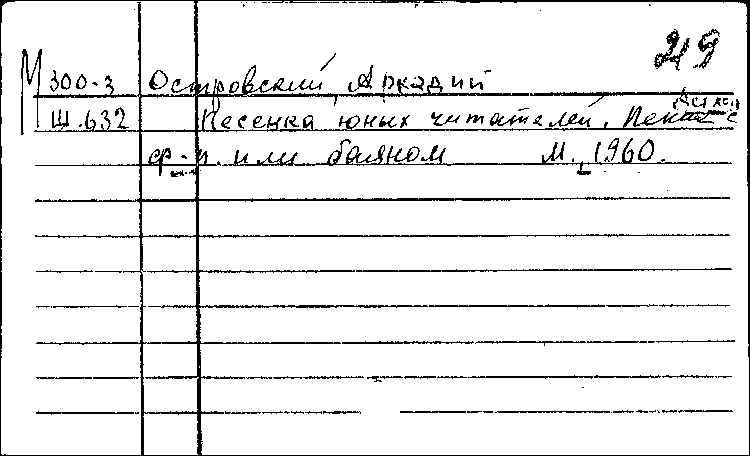 219
М 300-3 Островский, Аркадий
Ш.632 Песенка юных читателей. Пение с
ф-п. или баяном М. 1960.